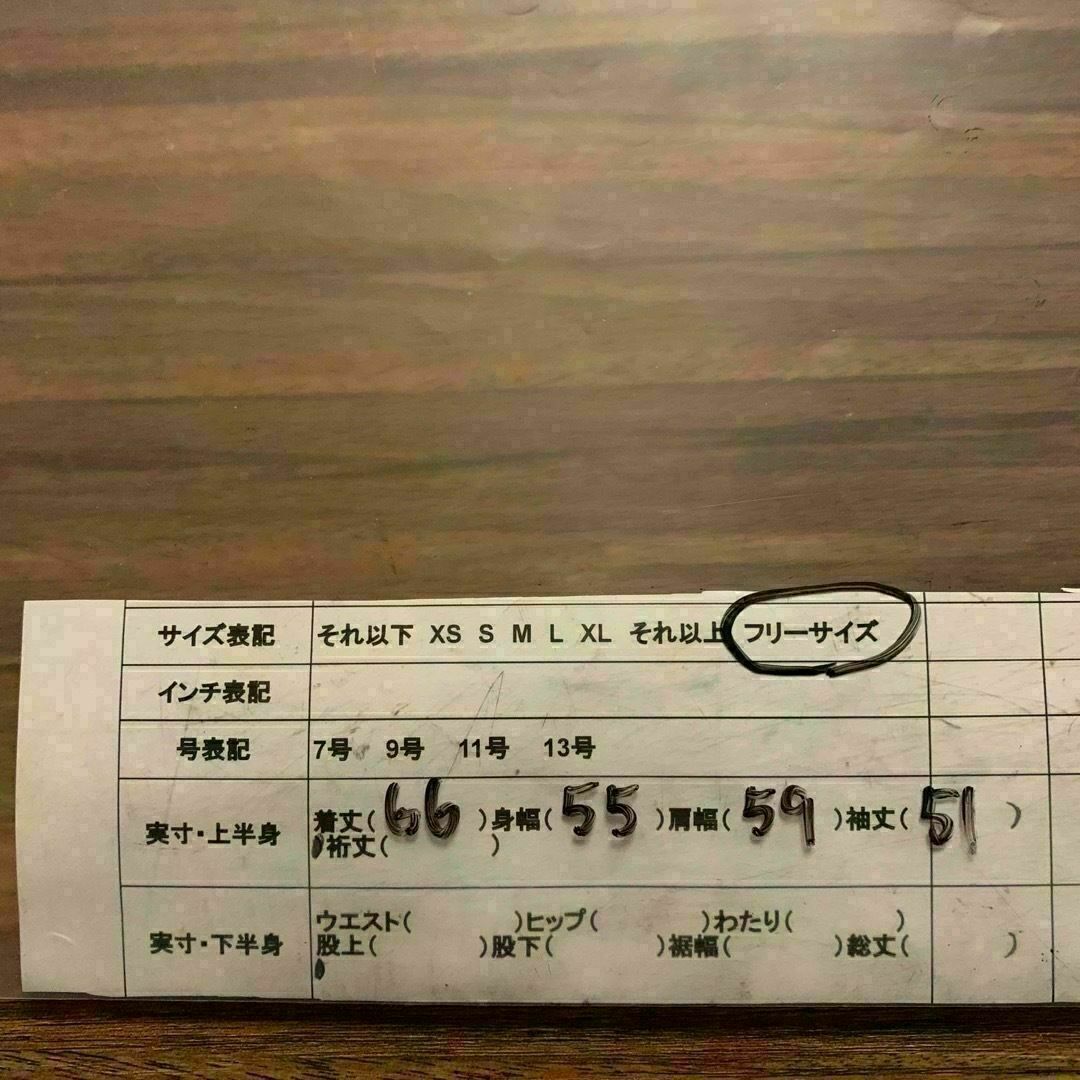 サイズ表記 それ以下 XS S M L XL それ以上 フリーサイズ
インチ表記
号表記 7号 9号 11号 13号
実寸・上半身 着丈( 66 )身幅( 55 )肩幅( 59 )袖丈( 51 )
裄丈( )
実寸・下半身 ウエスト( )ヒップ( )わたり( )
股上( )股下( )裾幅( )総丈( )